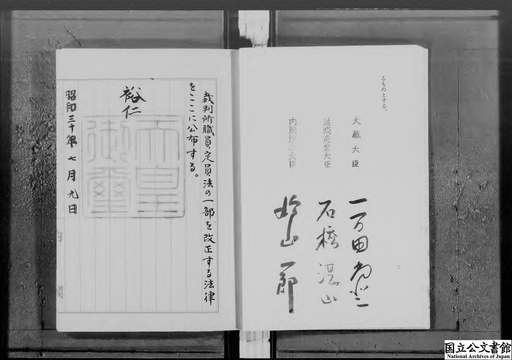 るものとする。
大蔵大臣
一万田尚登
通商産業大臣
石橋湛山
内閣総理大臣
鳩山一郎
裁判所職員定員法の一部を改正する法律
をここに公布する。
裕仁
天皇
御璽
昭和三十年七月九日
国立公文書館
National Archives of Japan